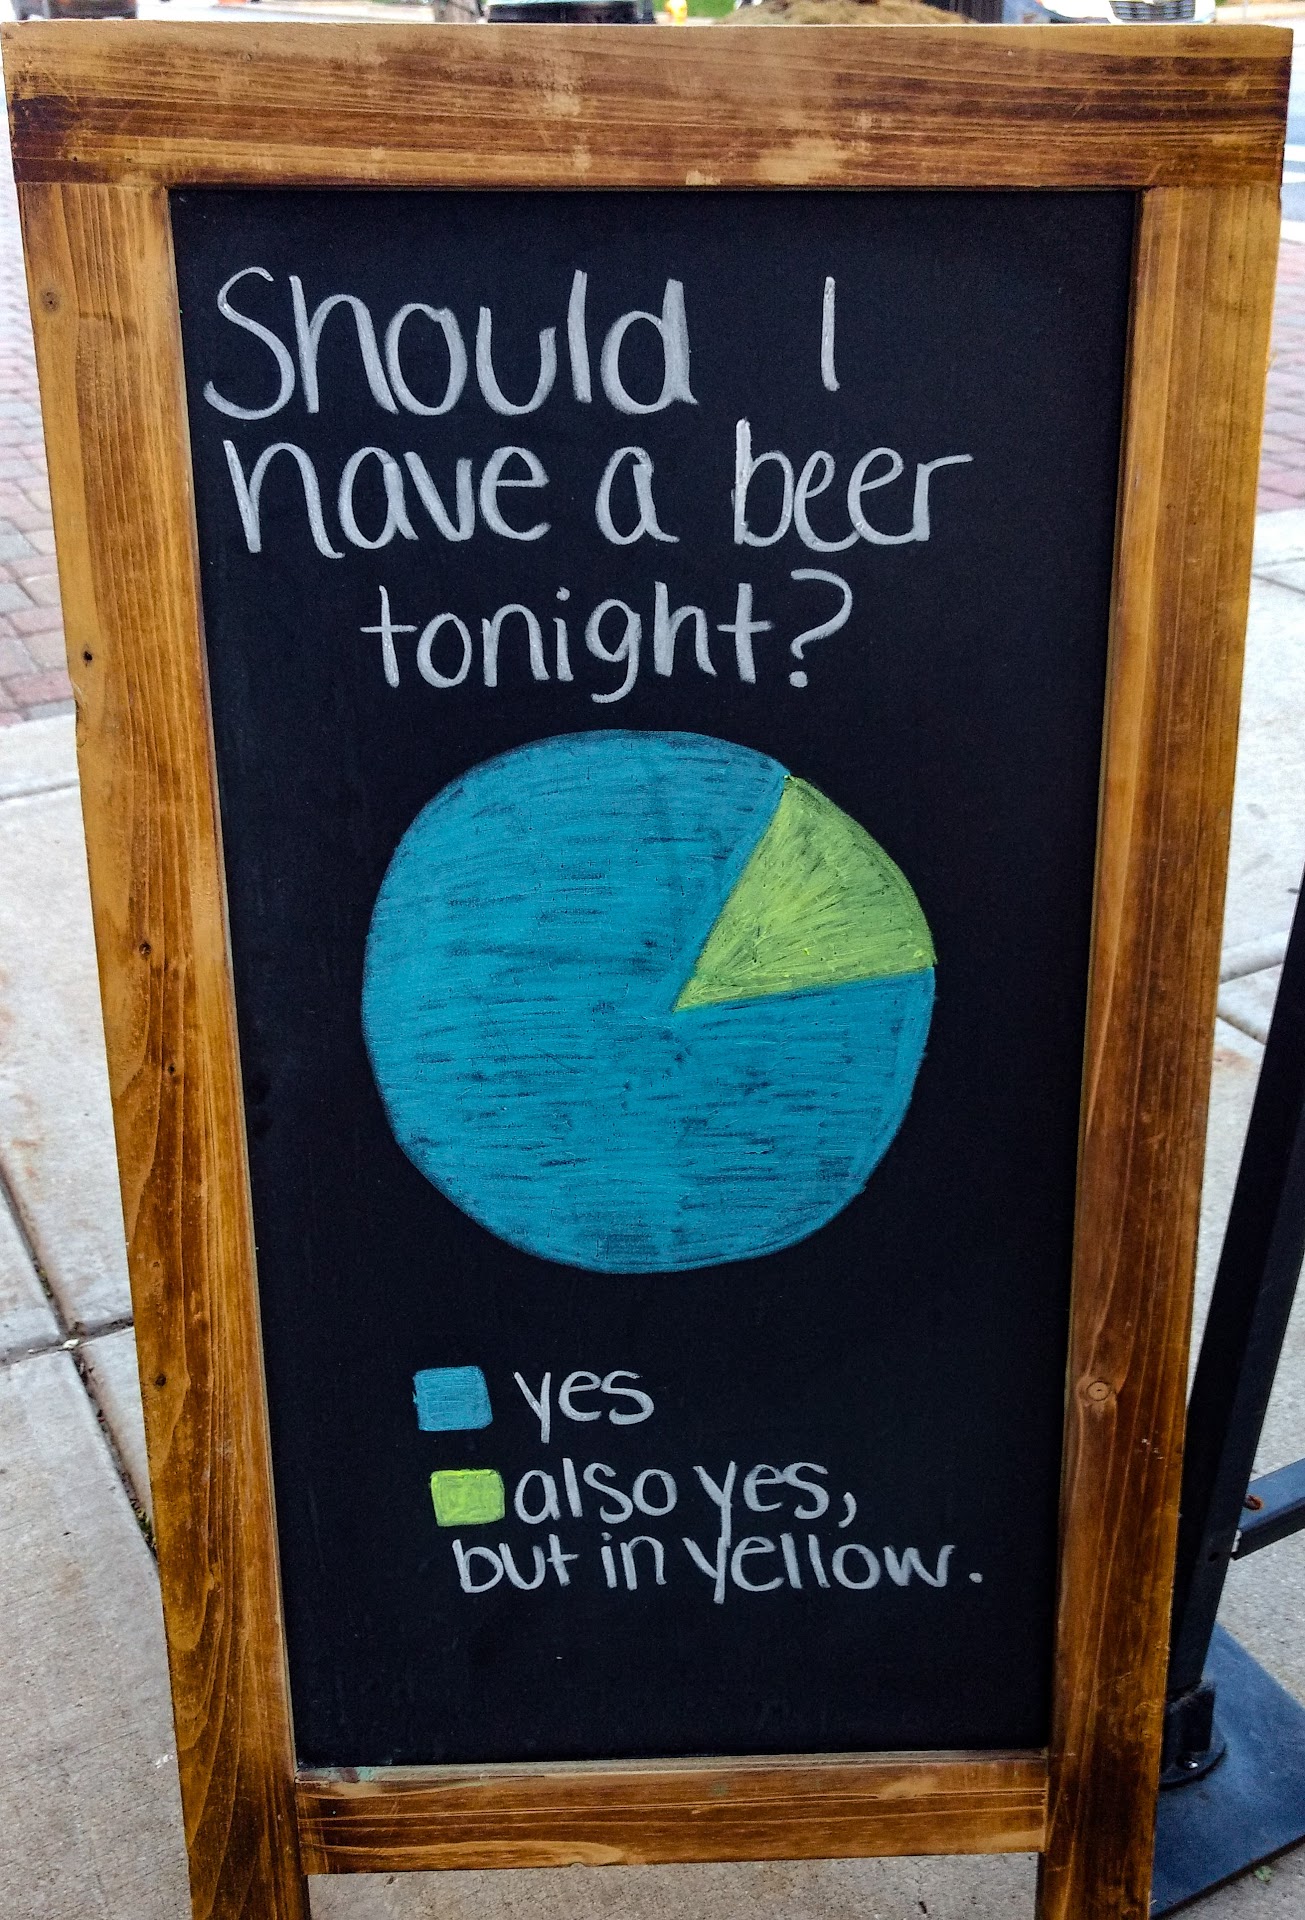 Should I
have a beer
tonight?
yes
also yes,
but in yellow.